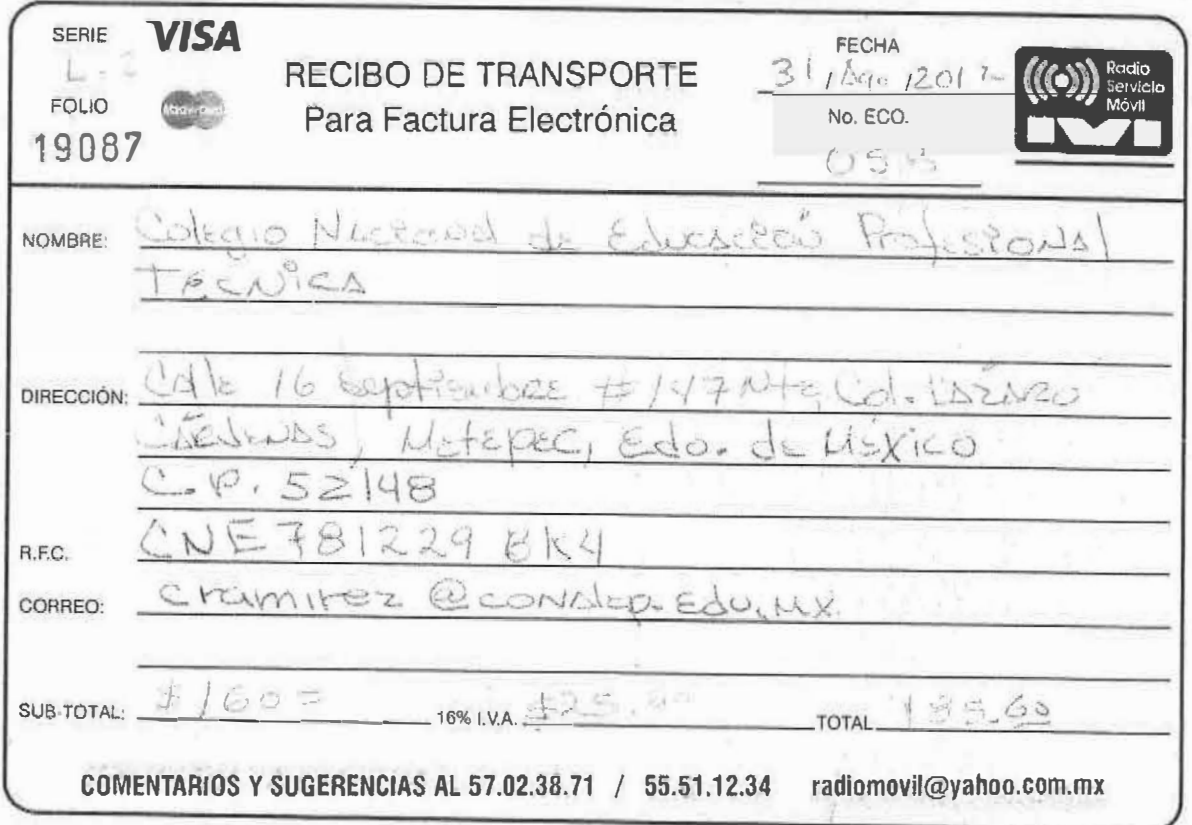 SERIE VISA
L-2
FOLIO
19087
RECIBO DE TRANSPORTE
Para Factura Electrónica
FECHA
31 / Ago / 201
No. ECO.
Radio
Servicio
Móvil
NOMBRE: Colegio Nacional de Educación Profesional
TECNICA
DIRECCIÓN: Calle 16 Septiembre #147 Nte, Col. LAZARO
CÁRDENAS, Metepec, Edo. de México
C.P. 52148
R.F.C. CNE781229 BK4
CORREO: cramirez@conalep.edu.mx
SUB-TOTAL: $160= 16% I.V.A. $25.60 TOTAL 185.60
COMENTARIOS Y SUGERENCIAS AL 57.02.38.71 / 55.51.12.34 radiomovil@yahoo.com.mx